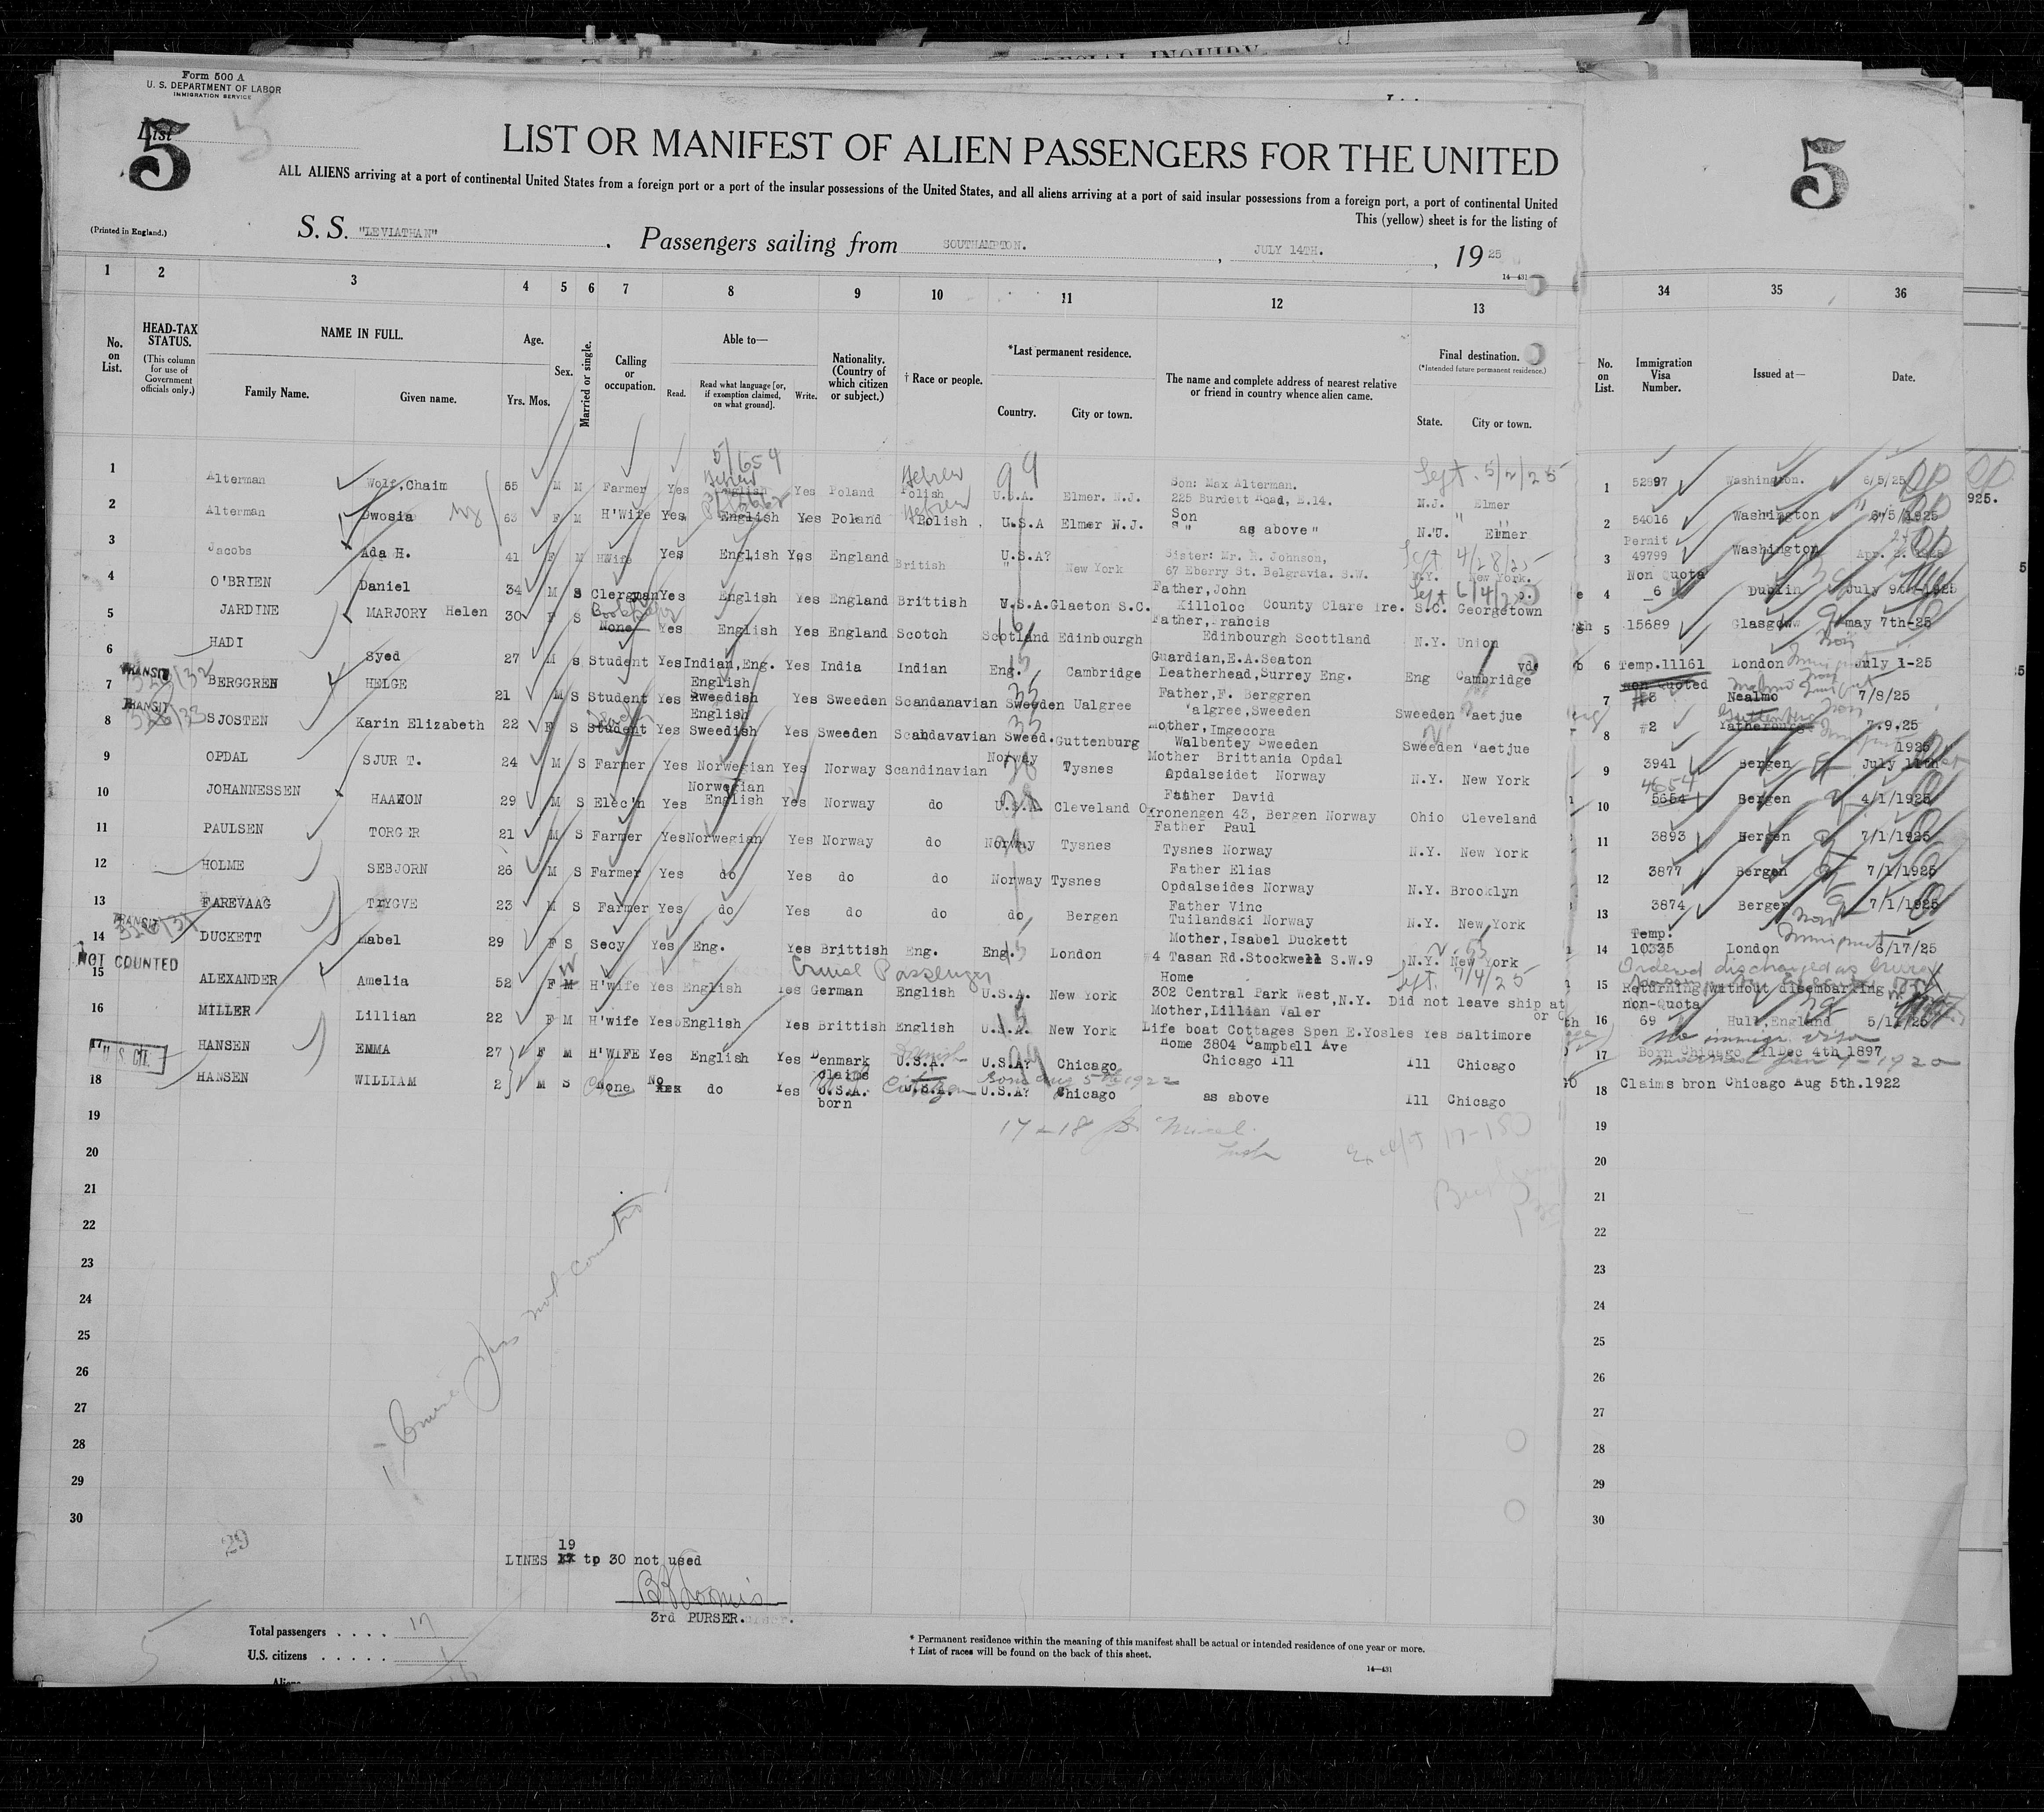 SPECIAL INQUIRY
Form 500 A
U. S. DEPARTMENT OF LABOR
IMMIGRATION SERVICE
List
5
5
5
LIST OR MANIFEST OF ALIEN PASSENGERS FOR THE UNITED
ALL ALIENS arriving at a port of continental United States from a foreign port or a port of the insular possessions of the United States, and all aliens arriving at a port of said insular possessions from a foreign port, a port of continental United
This (yellow) sheet is for the listing of
(Printed in England.)
S. S. "LEVIATHAN" . Passengers sailing from SOUTHAMPTON. , JULY 14TH. , 19 25
14—431
1 2 3 4 5 6 7 8 9 10 11 12 13 34 35 36
No. on List.
HEAD-TAX STATUS.
(This column for use of Government officials only.)
NAME IN FULL.
Family Name. Given name.
Age.
Yrs. Mos.
Sex.
Married or single.
Calling or occupation.
Able to—
Read. Read what language [or, if exemption claimed, on what ground]. Write.
Nationality. (Country of which citizen or subject.)
† Race or people.
*Last permanent residence.
Country. City or town.
The name and complete address of nearest relative or friend in country whence alien came.
Final destination.
(*Intended future permanent residence.)
State. City or town.
No. on List.
Immigration Visa Number.
Issued at—
Date.
5/654 Hebrew Hebrew 99 Sept. 5/2/25
1 Alterman Wolf,Chaim 55 M M Farmer Yes English Yes Poland Polish U.S.A. Elmer. N.J. Son: Max Alterman. 225 Burdett Road, E.14. N.J. Elmer 1 52897 Washington. 6/5/25
2 Alterman Dwosia 63 F M H'Wife Yes English Yes Poland Polish Hebrew U.S.A Elmer N.J. Son " as above" N.J. Elmer 2 54016 Washington 6/5/1925
3 Jacobs Ada H. 41 F M HWife Yes English Yes England British U.S.A? New York Sister: Mr. R. Johnson, 67 Eberry St. Belgravia. S.W. Sept 4/28/25 N.Y. New York. 3 Permit 49799 Washington Apr. 2. 1925
4 O'BRIEN Daniel 34 M S Clergman Yes English Yes England Brittish U.S.A. Glaeton S.C. Father,John Killoloc County Clare Ire. Sept 6/4/25 S.C. Georgetown 4 Non Quota 6 Dublin July 9th-1925
5 JARDINE MARJORY Helen 30 F S None Yes English Yes England Scotch Scotland Edinbourgh Father, Francis Edinbourgh Scottland N.Y. Union 5 15689 Glasgow may 7th-25
6 HADI Syed 27 M s Student Yes Indian,Eng. Yes India Indian Eng. Cambridge Guardian,E.A.Seaton Leatherhead,Surrey Eng. Eng Cambridge 6 Temp.11161 London July 1-25
TRANSIT
7 BERGGREN HELGE 21 M S Student Yes English Sweedish Yes Sweeden Scandanavian Sweeden Ualgree Father,F. Berggren Valgree,Sweeden Sweeden Vaetjue 7 non quoted #3 Nealmo 7/8/25
TRANSIT
8 SJOSTEN Karin Elizabeth 22 F S Student Yes English Swedish Yes Sweeden Scandavavian Sweed. Guttenburg Mother,Imgecora Walbentey Sweeden Sweeden Vaetjue 8 #2 Yatherburge 7.9.25
9 OPDAL SJUR T. 24 M S Farmer Yes Norwegian Yes Norway Scandinavian Norway Tysnes Mother Brittania Opdal Opdalseidet Norway N.Y. New York 9 3941 Bergen 1925 July 11th
10 JOHANNESSEN HAAKON 29 M S Elec'n Yes Norwegian English Yes Norway do U.S.A Cleveland O. Father David Kronengen 43, Bergen Norway Ohio Cleveland 10 4654 5654 Bergen 4/1/1925
11 PAULSEN TORGER 21 M S Farmer Yes Norwegian Yes Norway do Norway Tysnes Father Paul Tysnes Norway N.Y. New York 11 3893 Bergen 7/1/1925
12 HOLME SEBJORN 26 M S Farmer Yes do Yes do do Norway Tysnes Father Elias Opdalseides Norway N.Y. Brooklyn 12 3877 Bergen 7/1/1925
13 FAREVAAG TRYGVE 23 M S Farmer Yes do Yes do do do Bergen Father Vinc Tuilandski Norway N.Y. New York 13 3874 Bergen 7/1/1925
TRANSIT
14 DUCKETT Mabel 29 F S Secy Yes Eng. Yes Brittish Eng. Eng. London Mother,Isabel Duckett 4 Tasan Rd.Stockwell S.W.9 N.Y. New York 14 Temp: 10335 London 6/17/25
NOT COUNTED Cruise Passenger Sept. 7/4/25 Ordered discharged as cruise
15 ALEXANDER Amelia 52 F M H'wife Yes English Yes German English U.S.A. New York Home 302 Central Park West,N.Y. Did not leave ship at 15 Returning without disembarking
16 MILLER Lillian 22 F M H'wife Yes English Yes Brittish English U.S.A. New York Mother,Lillian Valer Life boat Cottages Spen E.Yosles Yes Baltimore 16 non-Quota 69 Hull,England 5/11/25
U. S. CIT.
17 HANSEN EMMA 27 F M H'WIFE Yes English Yes Denmark Danish U.S.A. U.S.A? Chicago Home 3804 Campbell Ave Chicago Ill Ill Chicago no immigr. visa 17 Born Chicago IllDec 4th 1897
18 HANSEN WILLIAM 2 M S None No do Yes Claims U.S.A. born Citizen Born Aug 5th 1922 U.S.A? Chicago as above Ill Chicago 18 Claims bron Chicago Aug 5th.1922
19 19
20 20
21 21
22 22
23 23
24 24
25 25
26 26
27 27
28 28
29 29
30 30
1 - Cruise Pass not counted
29
19
LINES to 30 not used
3rd PURSER.
Total passengers . . . . 17
U.S. citizens . . . . . . 1
* Permanent residence within the meaning of this manifest shall be actual or intended residence of one year or more.
† List of races will be found on the back of this sheet.
14—431